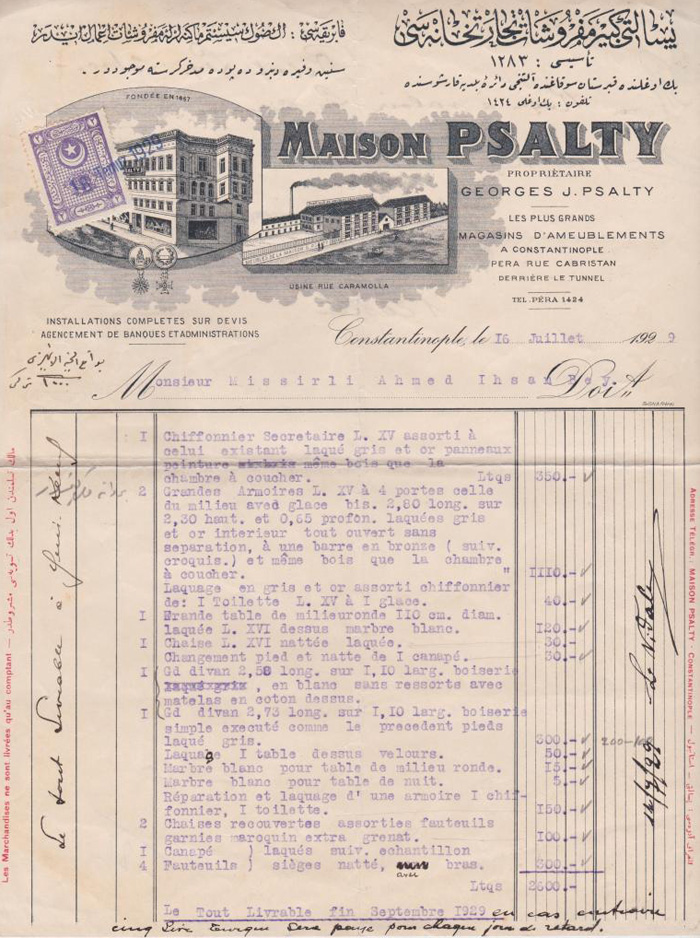 پسالتی كبیر مفروشات تجارتخانه سی
تأسیسی : ١٢٨٣
تلفون : بك اوغلی ١٤٢٤
FONDÉE EN 1867
MAISON PSALTY
PROPRIÉTAIRE
GEORGES J. PSALTY
LES PLUS GRANDS
MAGASINS D'AMEUBLEMENTS
A CONSTANTINOPLE
PERA RUE CABRISTAN
DERRIÈRE LE TUNNEL
TEL. PÉRA 1424
USINE RUE CARAMOLLA
INSTALLATIONS COMPLETES SUR DEVIS
AGENCEMENT DE BANQUES ET ADMINISTRATIONS
Constantinople, le 16 Juillet 1929
Monsieur Missirli Ahmed Ihsan Bey. Doit
I Chiffonnier Secretaire L. XV assorti à
celui existant laqué gris et or panneaux
peinture même bois que la
chambre à coucher. Ltqs 350.-
2 Grandes Armoires L. XV à 4 portes celle
du milieu aved glace bis. 2,80 long. sur
2,30 haut. et 0,65 profon. laquées gris
et or interieur tout ouvert sans
separation, à une barre en bronse ( suiv.
croquis.) et même bois que la chambre
à coucher. " IIIO.-
Laquage en gris et or assorti chiffonnier
de: I Toilette L. XV à I glace. 40.-
I Frande table de milieuronde IIO cm. diam.
laquée L. XVI dessus marbre blanc. I20.-
I Chaise L. XVI nattée laquée. 30.-
Changement pied et natte de I canapé. 30.-
I Gd divan 2,58 long. sur I,IO larg. boiserie
laqué gris , en blanc sans ressorts avec
matelas en coton dessus.
I Gd divan 2,73 long. sur I,IO larg. boiserie
simple executé comme le precedent pieds
laqué gris. 300.- 200-100
Laquage I table dessus velours. 50.-
Marbre blanc pour table de milieu ronde. I5.-
Marbre blanc pour table de nuit. 5.-
Réparation et laquage d' une armoire I chif-
fonnier, I toilette. I50.-
2 Chaises recouvertes assorties fauteuils
garnies maroquin extra grenat. I00.-
I Canapé ) laqués suiv. echantillon
4 Fauteuils ) sièges natté, avec bras. 300.-
Ltqs 2600.-
Le Tout Livrable fin Septembre I929 en cas contraire
cinq Livre Turque sera payée pour chaque jour de retard.
Les Marchandises ne sont livrées qu'au comptant
Le tout Livrable à
ADRESSE TÉLÉGR. MAISON PSALTY - CONSTANTINOPLE
16/7/29